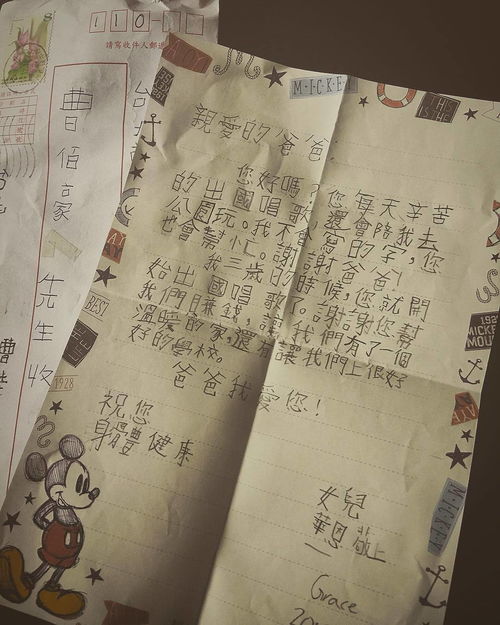 110
請寫收件人郵遞
曹佰豪 先生 收
M·I·C·K·E·Y
親愛的爸爸：
您好嗎？您每天辛苦
的出國唱歌，還會陪我，去
公園玩。我不會寫的字，您
也會幫忙。謝謝爸爸！
我三歲的時候，您就開
始出國唱歌。謝謝您幫
我們賺錢，讓我們有了一個
溫暖的家，還有讓我們上很好
好的學校。
爸爸我愛您！
祝您
身體健康
女兒
華恩 敬上
Grace
BEST
1928
MICKEY
MOUSE
M·I·C·K·E·Y